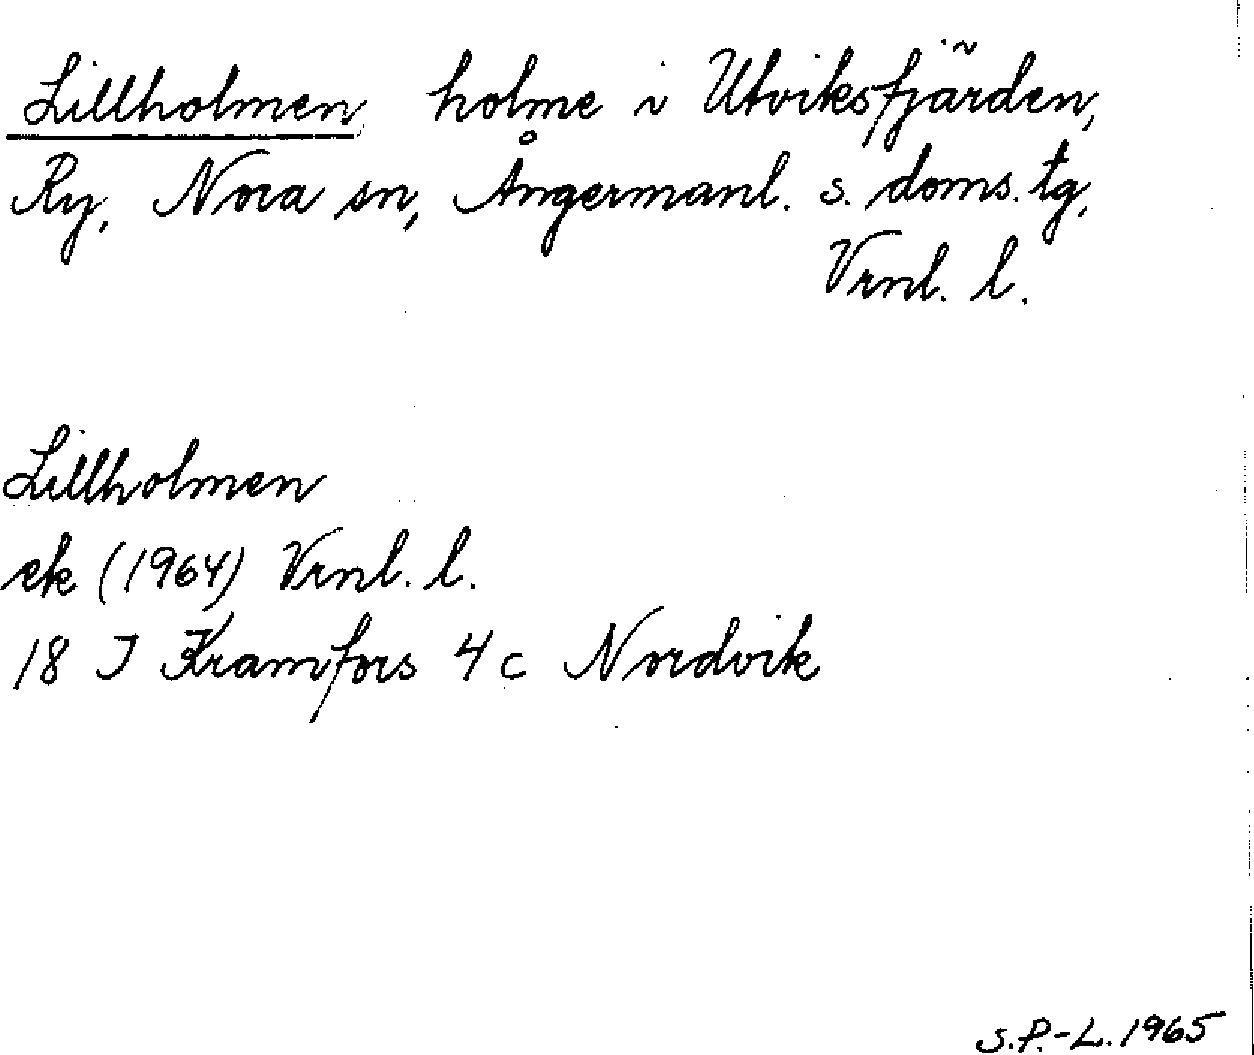 Lillholmen holme i Utviksfjärden,
Ry, Nora sn, Ångermanl. s. doms. tg,
Vrnl. l.
Lillholmen
ek (1964) Vrnl. l.
18 I Kramfors 4 c Nordvik
S.P.-L. 1965